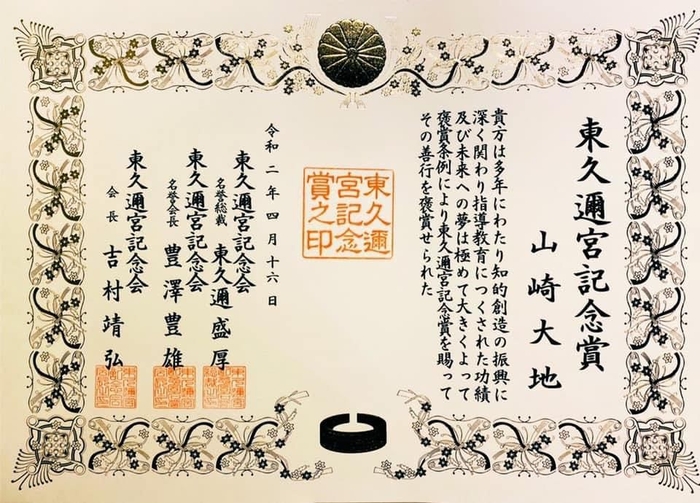 東久邇宮記念賞
山崎大地
貴方は多年にわたり知的創造の振興に
深く関わり指導教育につくされた功績
及び未来への夢は極めて大きくよって
褒賞条例により東久邇宮記念賞を賜って
その善行を褒賞せられた
東久邇
宮記念
賞之印
令和二年四月十六日
東久邇宮記念会
名誉総裁 東久邇盛厚
東久邇宮記念会
名誉会長 豊澤豊雄
東久邇宮記念会
会長 吉村靖弘